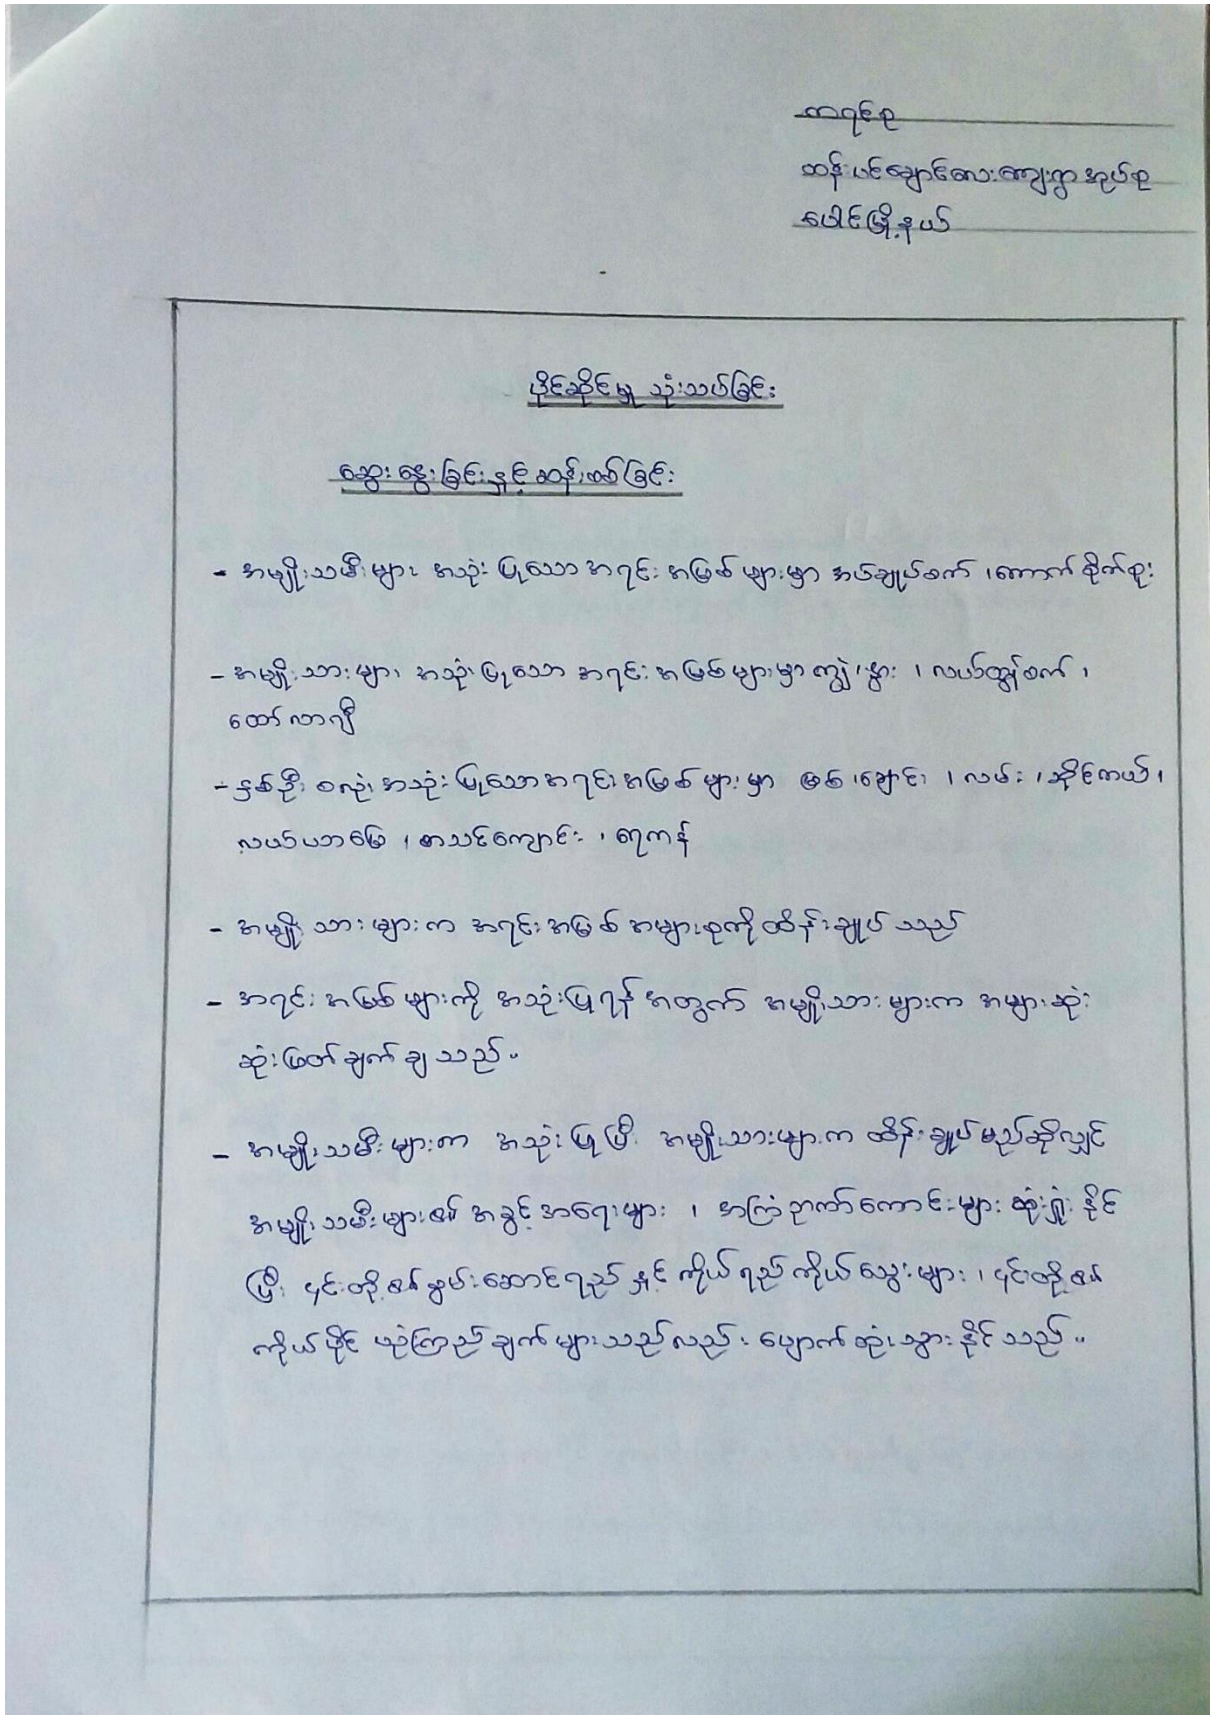 ကရင်စု
ထန်းပင်ချောင်လေးကျေးရွာအုပ်စု
ပေါင်မြို့နယ်
ပိုင်ဆိုင်မှု သုံးသပ်ခြင်း
ဆွေးနွေးခြင်းနှင့်ဆန်းစစ်ခြင်း
- အမျိုးသမီးများ အသုံးပြုသောအရင်းအမြစ်များမှာ အပ်ချုပ်စက် ၊ကောက်စိုက်စူး
- အမျိုးသားများ အသုံးပြုသော အရင်းအမြစ်များမှာကျွဲ၊နွား ၊ လယ်ထွန်စက် ၊
ထော်လာဂျီ
- နှစ်ဦးစလုံး အသုံးပြုသောအရင်းအမြစ်များမှာ မြစ် ၊ချောင်း ၊ လမ်း ၊ဆိုင်ကယ်၊
လယ်ယာမြေ ၊ စာသင်ကျောင်း ၊ ရေကန်
- အမျိုးသားများက အရင်းအမြစ်အများစုကိုထိန်းချုပ်သည်
- အရင်းအမြစ်များကို အသုံးပြုရန်အတွက် အမျိုးသားများက အများဆုံး
ဆုံးဖြတ်ချက်ချသည်။
- အမျိုးသမီးများက အသုံးပြုပြီး အမျိုးသားများက ထိန်းချုပ်မည်ဆိုလျှင်
အမျိုးသမီးများ၏ အခွင့်အရေးများ ၊ အကြံဉာဏ်ကောင်းများ ဆုံးရှုံးနိုင်
ပြီး ၎င်းတို့၏စွမ်းဆောင်ရည်နှင့်ကိုယ်ရည်ကိုယ်သွေးများ ၊ ၎င်းတို့၏
ကိုယ်ပိုင် ယုံကြည်ချက်များသည်လည်း ပျောက်ဆုံးသွားနိုင်သည်။